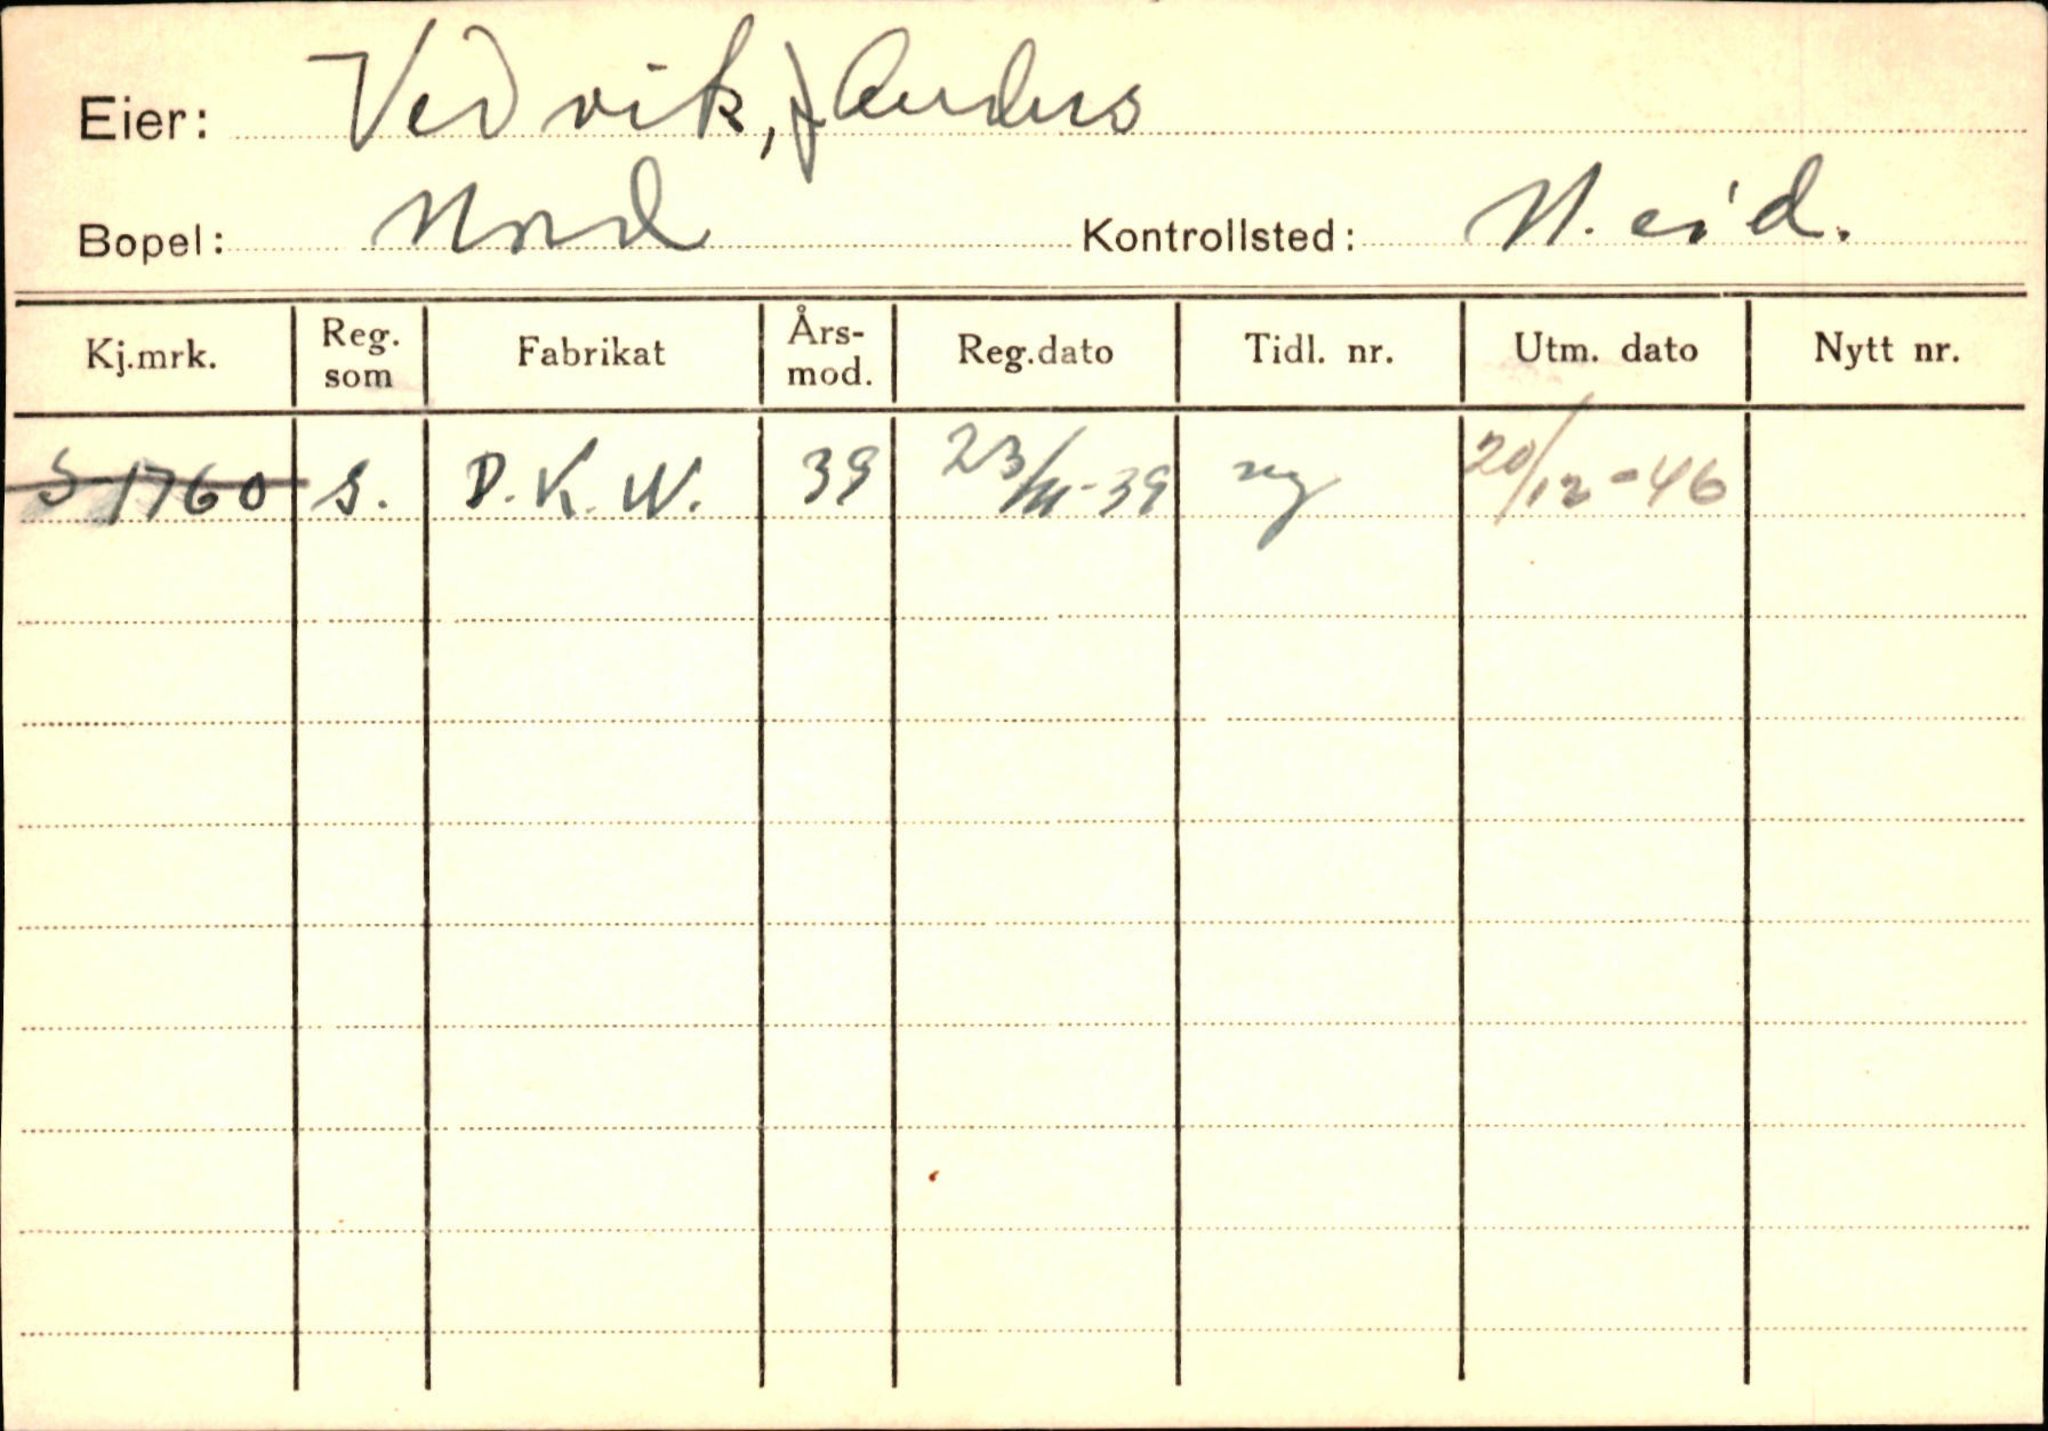 Eier: Vedvik, J Anders
Bopel: Nord Kontrollsted: N.eid.
Kj.mrk. Reg. som Fabrikat Års-mod. Reg.dato Tidl. nr. Utm. dato Nytt nr.
S-1760 S. D.K.W. 39 23/III-39 ny 20/12-46